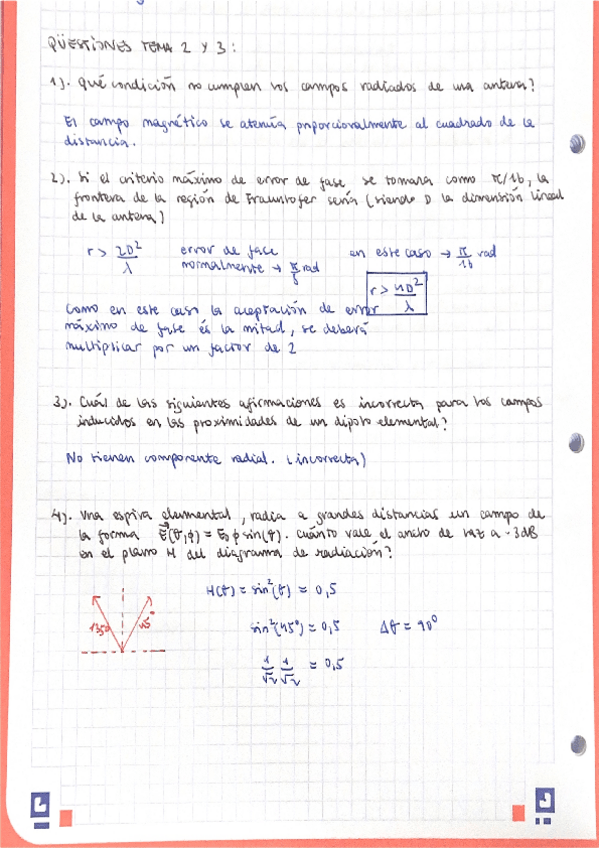 QÜESTIONES TEMA 2 Y 3:
1). Qué condición no cumplen los campos radiados de una antena?
El campo magnético se atenúa proporcionalmente al cuadrado de la
distancia.
2). Si el criterio máximo de error de fase se tomara como π/16, la
frontera de la región de Fraunhofer sería (siendo D la dimensión lineal
de la antena)
r > 2D²/λ error de fase en este caso → π/16 rad
normalmente → π/8 rad
r > 4D²/λ
Como en este caso la aceptación de error
máximo de fase és la mitad, se deberá
multiplicar por un factor de 2
3). Cuál de las siguientes afirmaciones es incorrecta para los campos
inducidos en las proximidades de un dipolo elemental?
No tienen componente radial. (incorrecta)
4). Una espira elemental, radia a grandes distancias un campo de
la forma E(θ,φ) = E₀ φ sin(θ). cuánto vale el ancho de haz a -3dB
en el plano H del diagrama de radiación?
H(θ) = sin²(θ) = 0,5
135º 45º
sin²(45º) = 0,5 Δθ = 90º
1/√2 1/√2 = 0,5